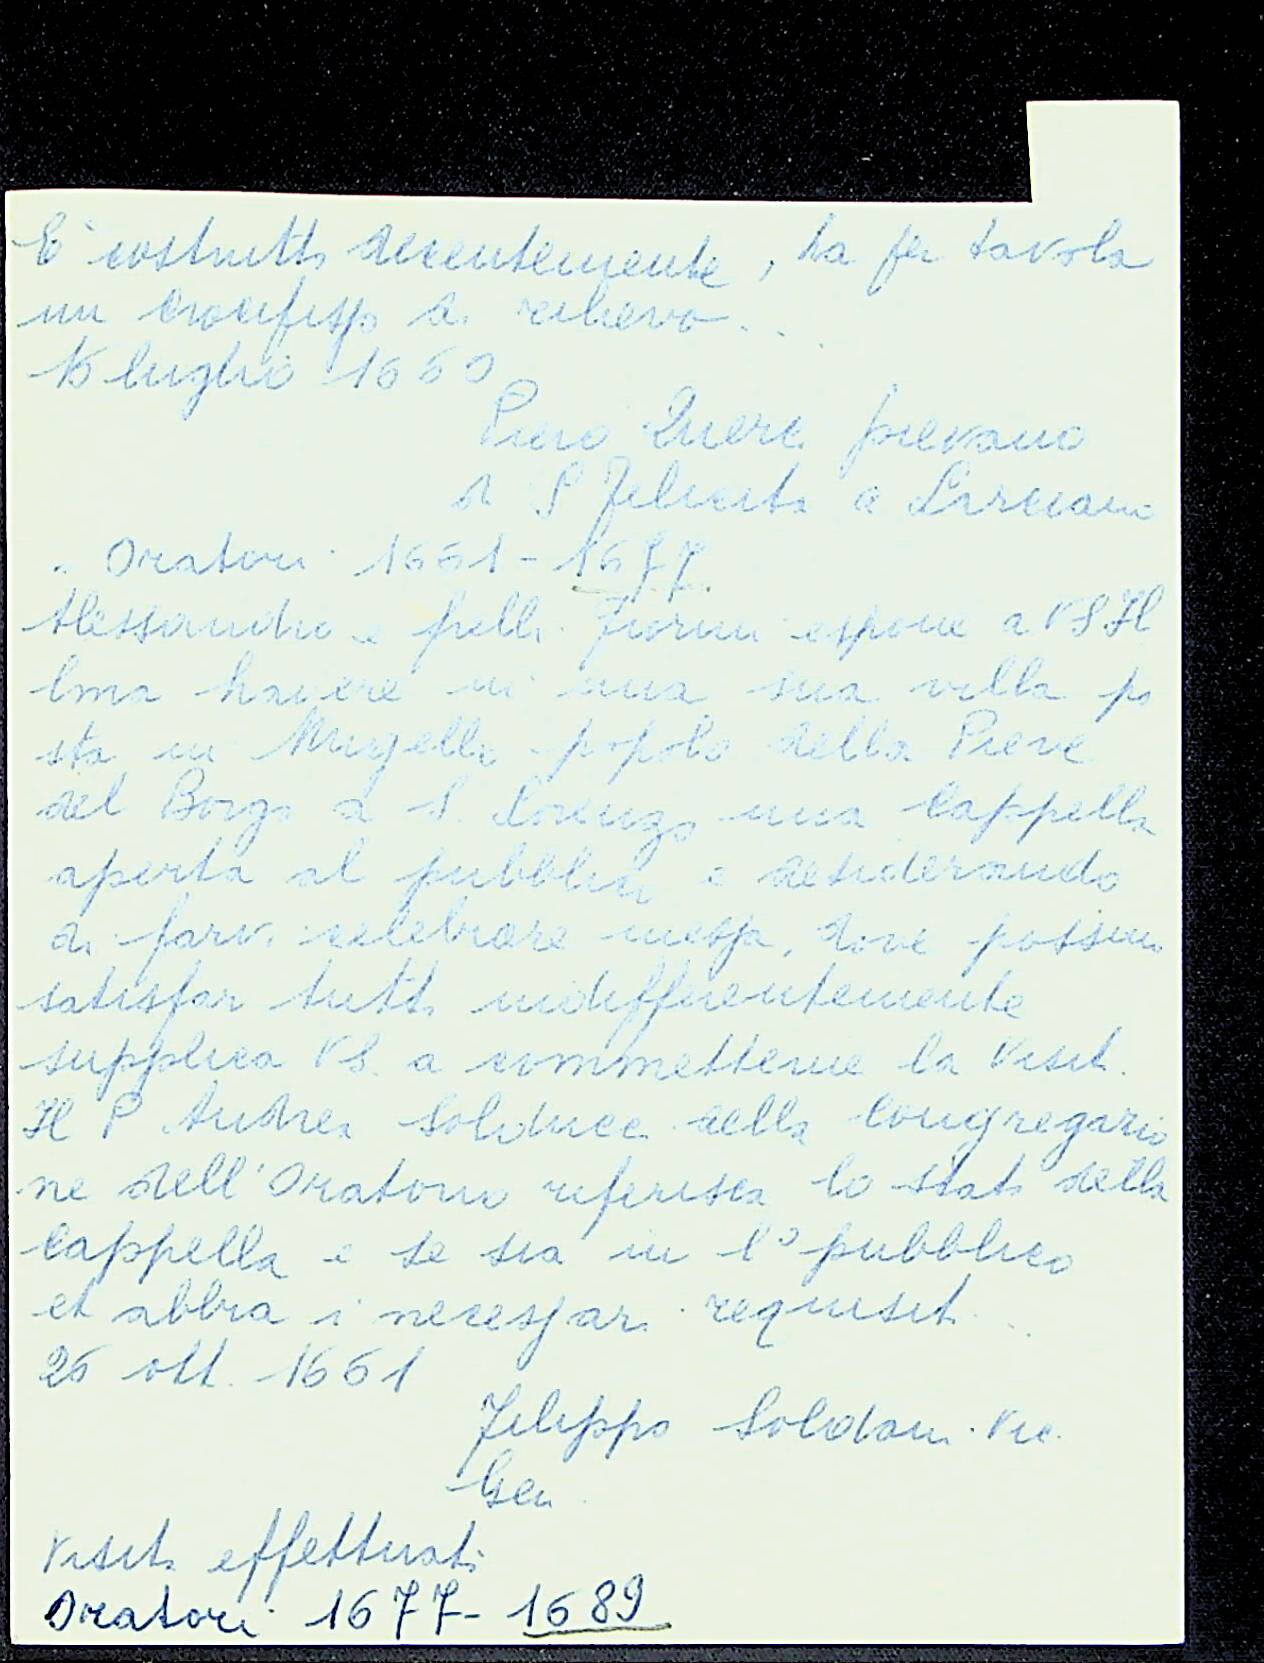 E' costruito decentemente, ha per tavola
un crocifisso di rilievo...
16 luglio 1660
Piero pievano
di S Felicita a Larciano
. Oratori 1661-1677.
Alessandro e frelli. Fiorini espone a VS Il
lma havere in una sua villa po
sta in Mugello popolo della Pieve
del Borgo a S. Lorenzo una Cappella
aperta al pubblico e desiderando
di farvi celebrare messa, dove possino
satisfar tutti indifferentemente
supplica VS. a commetterne la Visit.
Il P Andrea della Congregazio
ne dell'Oratorio referisca lo stato della
Cappella e se sia in l° pubblico
et abbia i necessari requisiti...
26 ott. 1661
Filippo Soldani Vic.
Gen.
Visita effettuata
Oratori 1677-1689